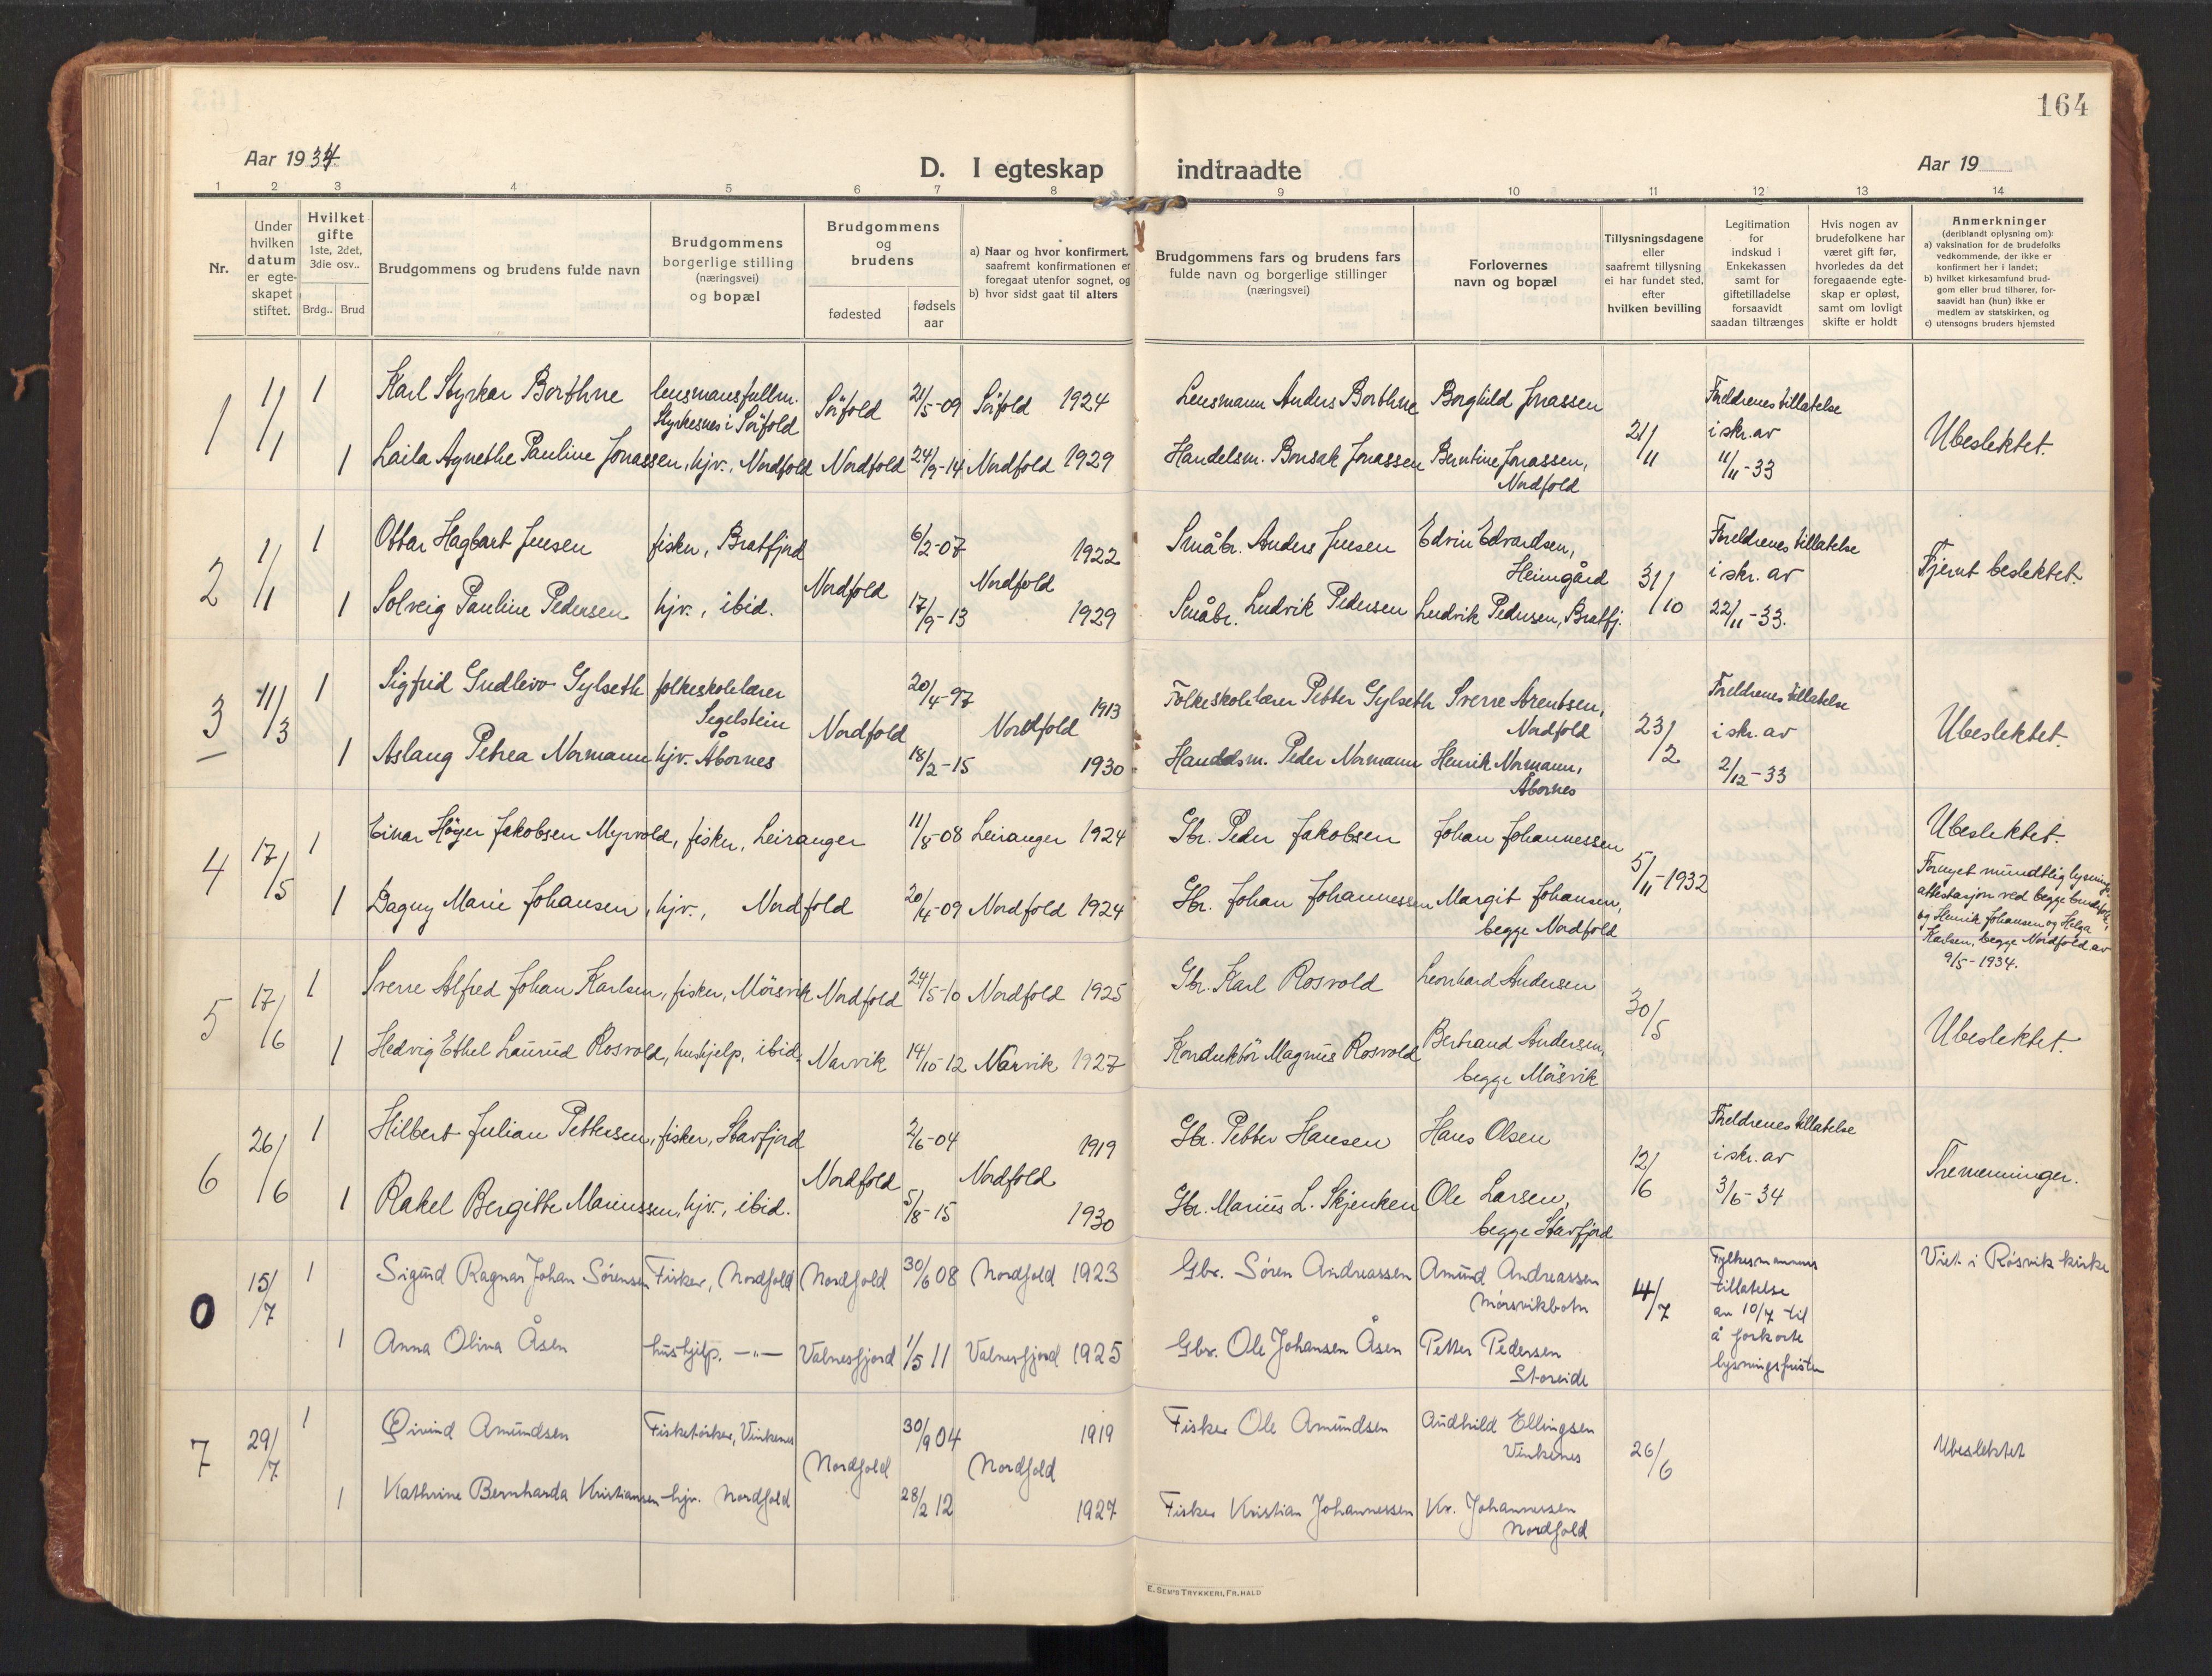 164
Aar 1934
D. I egteskap indtraadte
Aar 19
1 2 3 4 5 6 7 8 9 10 11 12 13 14
Nr.
Under hvilken datum er egte-skapet stiftet.
Hvilket gifte
1ste, 2det, 3die osv..
Brdg.. Brud
Brudgommens og brudens fulde navn
Brudgommens borgerlige stilling (næringsvei) og bopæl
Brudgommens og brudens
fødested
fødsels aar
a) Naar og hvor konfirmert, saafremt konfirmationen er foregaat utenfor sognet, og
b) hvor sidst gaat til alters
Brudgommens fars og brudens fars fulde navn og borgerlige stillinger (næringsvei)
Forlovernes navn og bopæl
Tillysningsdagene eller saafremt tillysning ei har fundet sted, efter hvilken bevilling
Legitimation for indskud i Enkekassen samt for giftetilladelse forsaavidt saadan tiltrænges
Hvis nogen av brudefolkene har været gift før, hvorledes da det foregaaende egte-skap er opløst, samt om lovligt skifte er holdt
Anmerkninger
(deriblandt oplysning om):
a) vaksination for de brudefolks vedkommende, der ikke er konfirmert her i landet;
b) hvilket kirkesamfund brud-gom eller brud tilhører, for-saavidt han (hun) ikke er medlem av statskirken, og
c) utensogns bruders hjemsted
1 1/1 1 Karl Styrkar Borthne lensmansfullm. Styrkesnes i Sörfold Sörfold 21/5-09 Sörfold 1924 Lensmann Anders Borthne Borghild Jonassen
1 Laila Agnethe Pauline Jonassen, hjv., Nordfold Nordfold 24/9-14 Nordfold 1929 Handelsm. Bonsak Jonassen Berntine Jonassen, Nordfold
21/11 Foreldrenes tillatelse i skr. av 11/11-33 Ubeslektet.
2 1/1 1 Ottar Hagbart Jensen fisker, Bratfjord 6/2-07 1922 Småbr. Anders Jensen Edvin Edvardsen, Heimgård
Nordfold Nordfold
1 Solveig Pauline Pedersen hjv., ibid. 17/9-13 1929 Småbr. Ludvik Pedersen Ludvik Pedersen, Bratfj.
31/10 Foreldrenes tillatelse i skr. av 22/11-33. Fjernt beslektet.
3 11/3 1 Sigfrid Gudleiv Gylseth folkeskolelærer Segelstein 20/4-97 1913 Folkeskolelærer Petter Gylseth Sverre Arentsen, Nordfold
Nordfold Nordfold
1 Aslaug Petrea Normann hjv. Åbornes 18/2-15 1930 Handelsm. Peder Normann Henrik Normann, Åbornes
23/2 Foreldrenes tillatelse i skr. av 2/12-33 Ubeslektet.
4 17/5 1 Einar Höger Jakobsen Myrvold, fisker, Leiranger 11/8-08 Leiranger 1924 Gbr. Peder Jakobsen Johan Johannessen
1 Dagny Marie Johansen, hjv., Nordfold 20/4-09 Nordfold 1924 Gbr. Johan Johannessen Margit Johansen, begge Nordfold
5/11-1932 Ubeslektet.
Fornyet mundtlig lysnings-
attestasjon ved begge brudefolk
og Henrik Johansen og Helga
Karlsen, begge Nordfold av
9/5-1934.
5 17/6 1 Sverre Alfred Johan Karlsen, fisker, Mörsvik Nordfold 24/5-10 Nordfold 1925 Gbr. Karl Rosvold Leonhard Andersen
1 Hedvig Ethel Laurud Rosvold, hushjelp, ibid. Narvik 14/10-12 Narvik 1927 Konduktör Magnus Rosvold Bertrand Andersen, begge Mörsvik
30/5 Ubeslektet.
6 26/6 1 Hilbert Julian Pettersen, fisker, Stavfjord 2/6-04 1919 Gbr. Petter Hansen Hans Olsen
Nordfold Nordfold
1 Rakel Bergitte Mariussen, hjv., ibid. 5/8-15 1930 Gbr. Marius L. Skjenken Ole Larsen, begge Stavfjord
12/6 Foreldrenes tillatelse i skr. av 3/6-34 Tremenninger.
0 15/7 1 Sigurd Ragnar Johan Sørensen Fisker, Nordfold Nordfold 30/6 08 Nordfold 1923 Gbr. Søren Andreassen Amund Andreassen Mørsvikbotn
1 Anna Olina Åsen hushjelp. —"— Valnesfjord 1/5 11 Valnesfjord 1925 Gbr. Ole Johansen Åsen Petter Pedersen Storeide
4/7 Fylkesmannens tillatelse av 10/7 til å forkorte lysningsfristen Viet i Røsvik kirke
7 29/7 1 Øivind Amundsen Fisketørker, Vinkenes 30/9 04 1919 Fisker Ole Amundsen Audhild Ellingsen Vinkenes
Nordfold Nordfold
1 Kathrine Bernharda Kristiansen hjv. Nordfold 28/2 12 1927 Fisker Kristian Johannessen Kr. Johannessen Nordfold
26/6 Ubeslektet
E. SEM'S TRYKKERI, FR.HALD